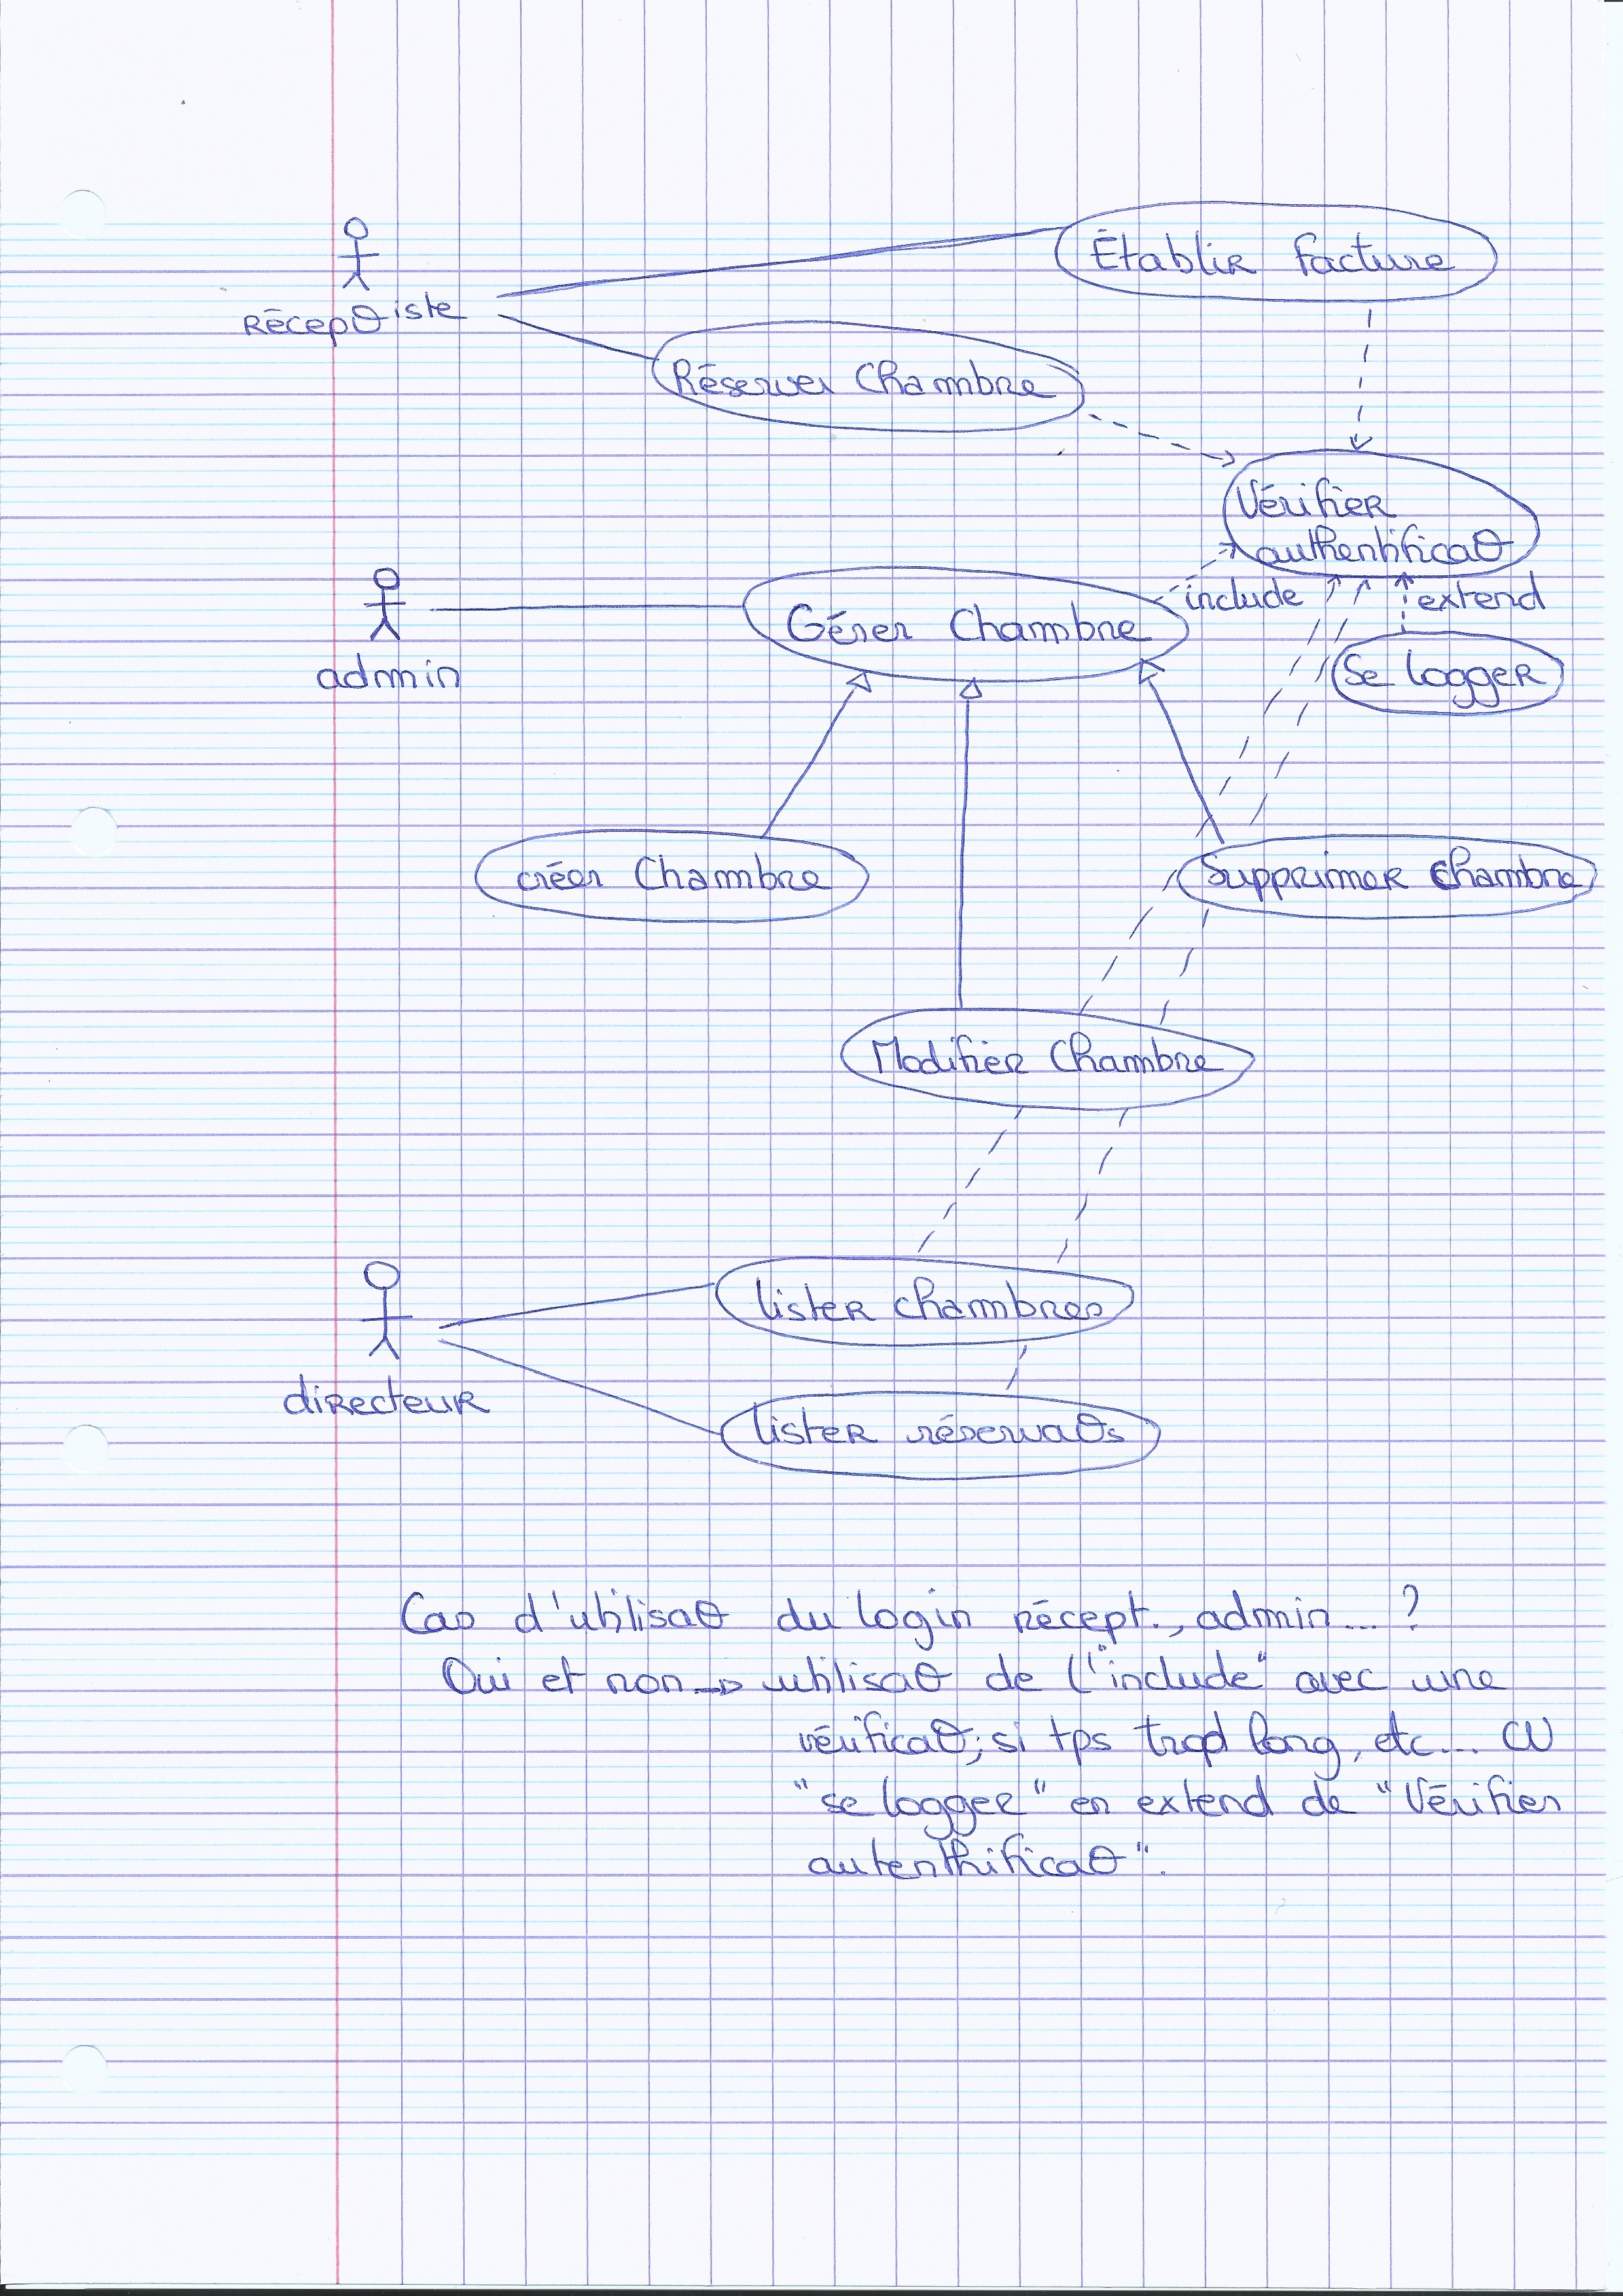 Établir facture
Récepθiste
Réserver Chambre
Vérifier
authentificaθ
include
extend
Gérer Chambre
admin
Se logger
créer Chambre
Supprimer Chambre
Modifier Chambre
lister chambres
directeur
lister réservaθs
Cas d'utilisaθ du login récept., admin... ?
Oui et non → utilisaθ de l'"include" avec une
vérificaθ; si tps trop long, etc... CU
"se logger" en extend de "Vérifier
autenthificaθ".